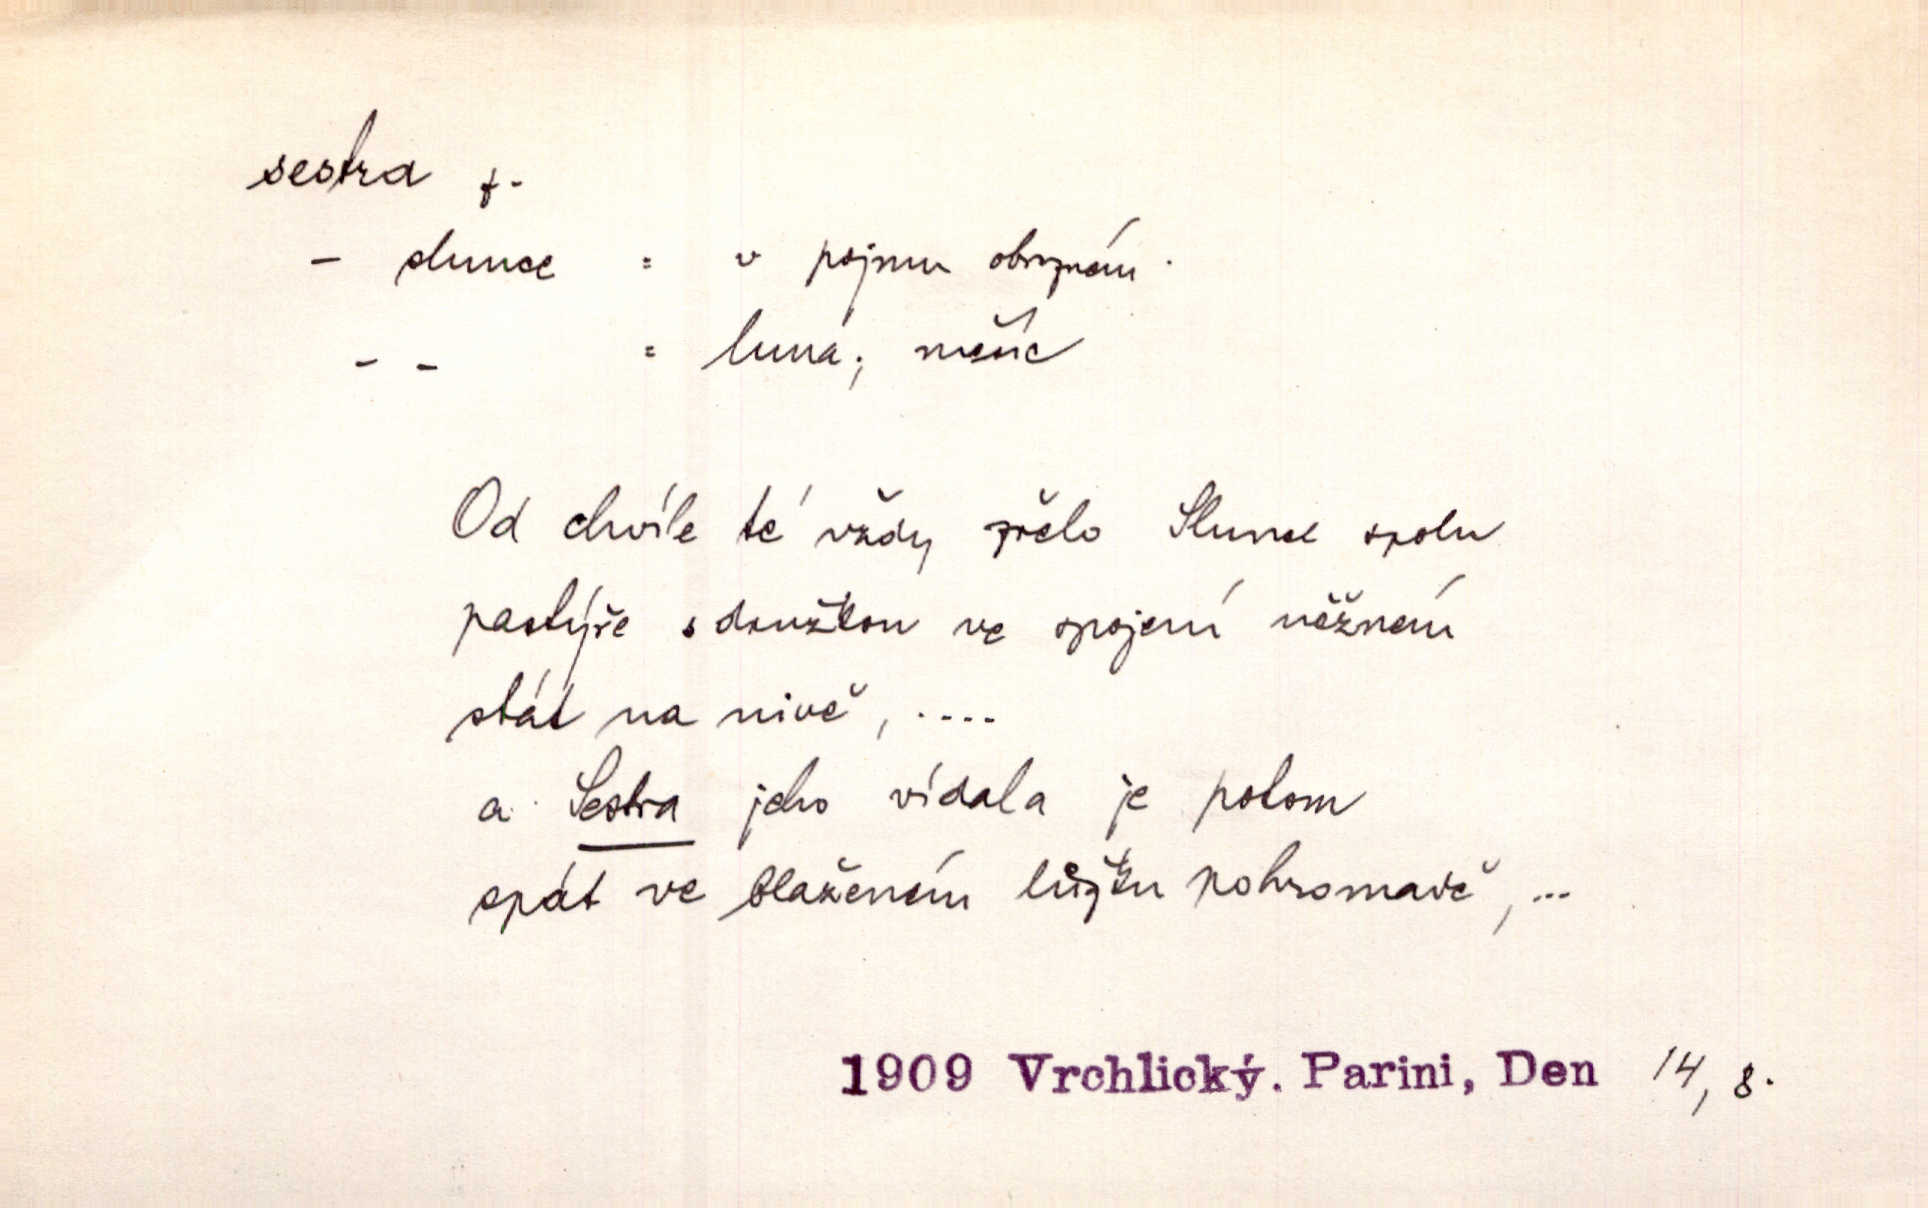 sestra f.
- slunce = v pojmu obrazném
- - = luna; měsíc
Od chvíle té vždy zřelo Slunce spolu
pastýře s družkou ve spojení něžném
stát na nivě, ....
a Sestra jeho vídala je potom
spát ve blaženém lůžku pohromadě, ...
1909 Vrchlický. Parini, Den 14, 8.